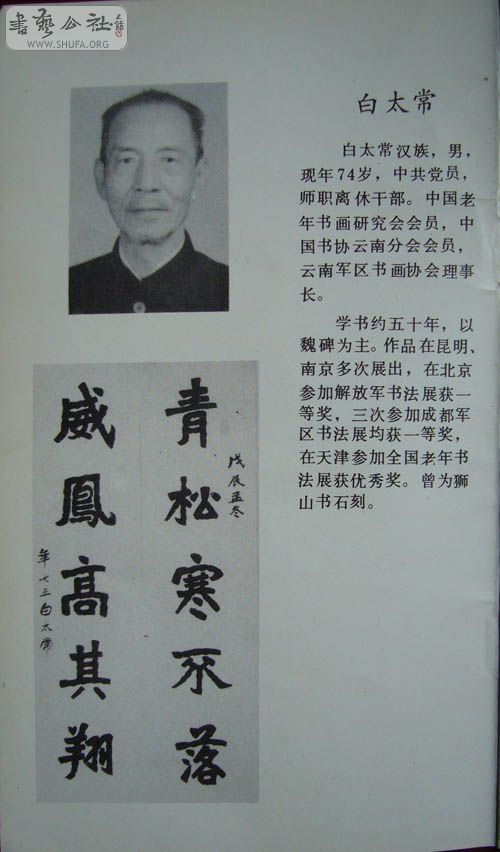 書藝公社
WWW.SHUFA.ORG
白太常
白太常汉族，男，
现年74岁，中共党员，
师职离休干部。中国老
年书画研究会会员，中
国书协云南分会会员，
云南军区书画协会理事
长。
学书约五十年，以
魏碑为主。作品在昆明、
南京多次展出，在北京
参加解放军书法展获一
等奖，三次参加成都军
区书法展均获一等奖，
在天津参加全国老年书
法展获优秀奖。曾为狮
山书石刻。
戊辰孟冬
青松寒不落
威鳳高其翔
年七三白太常